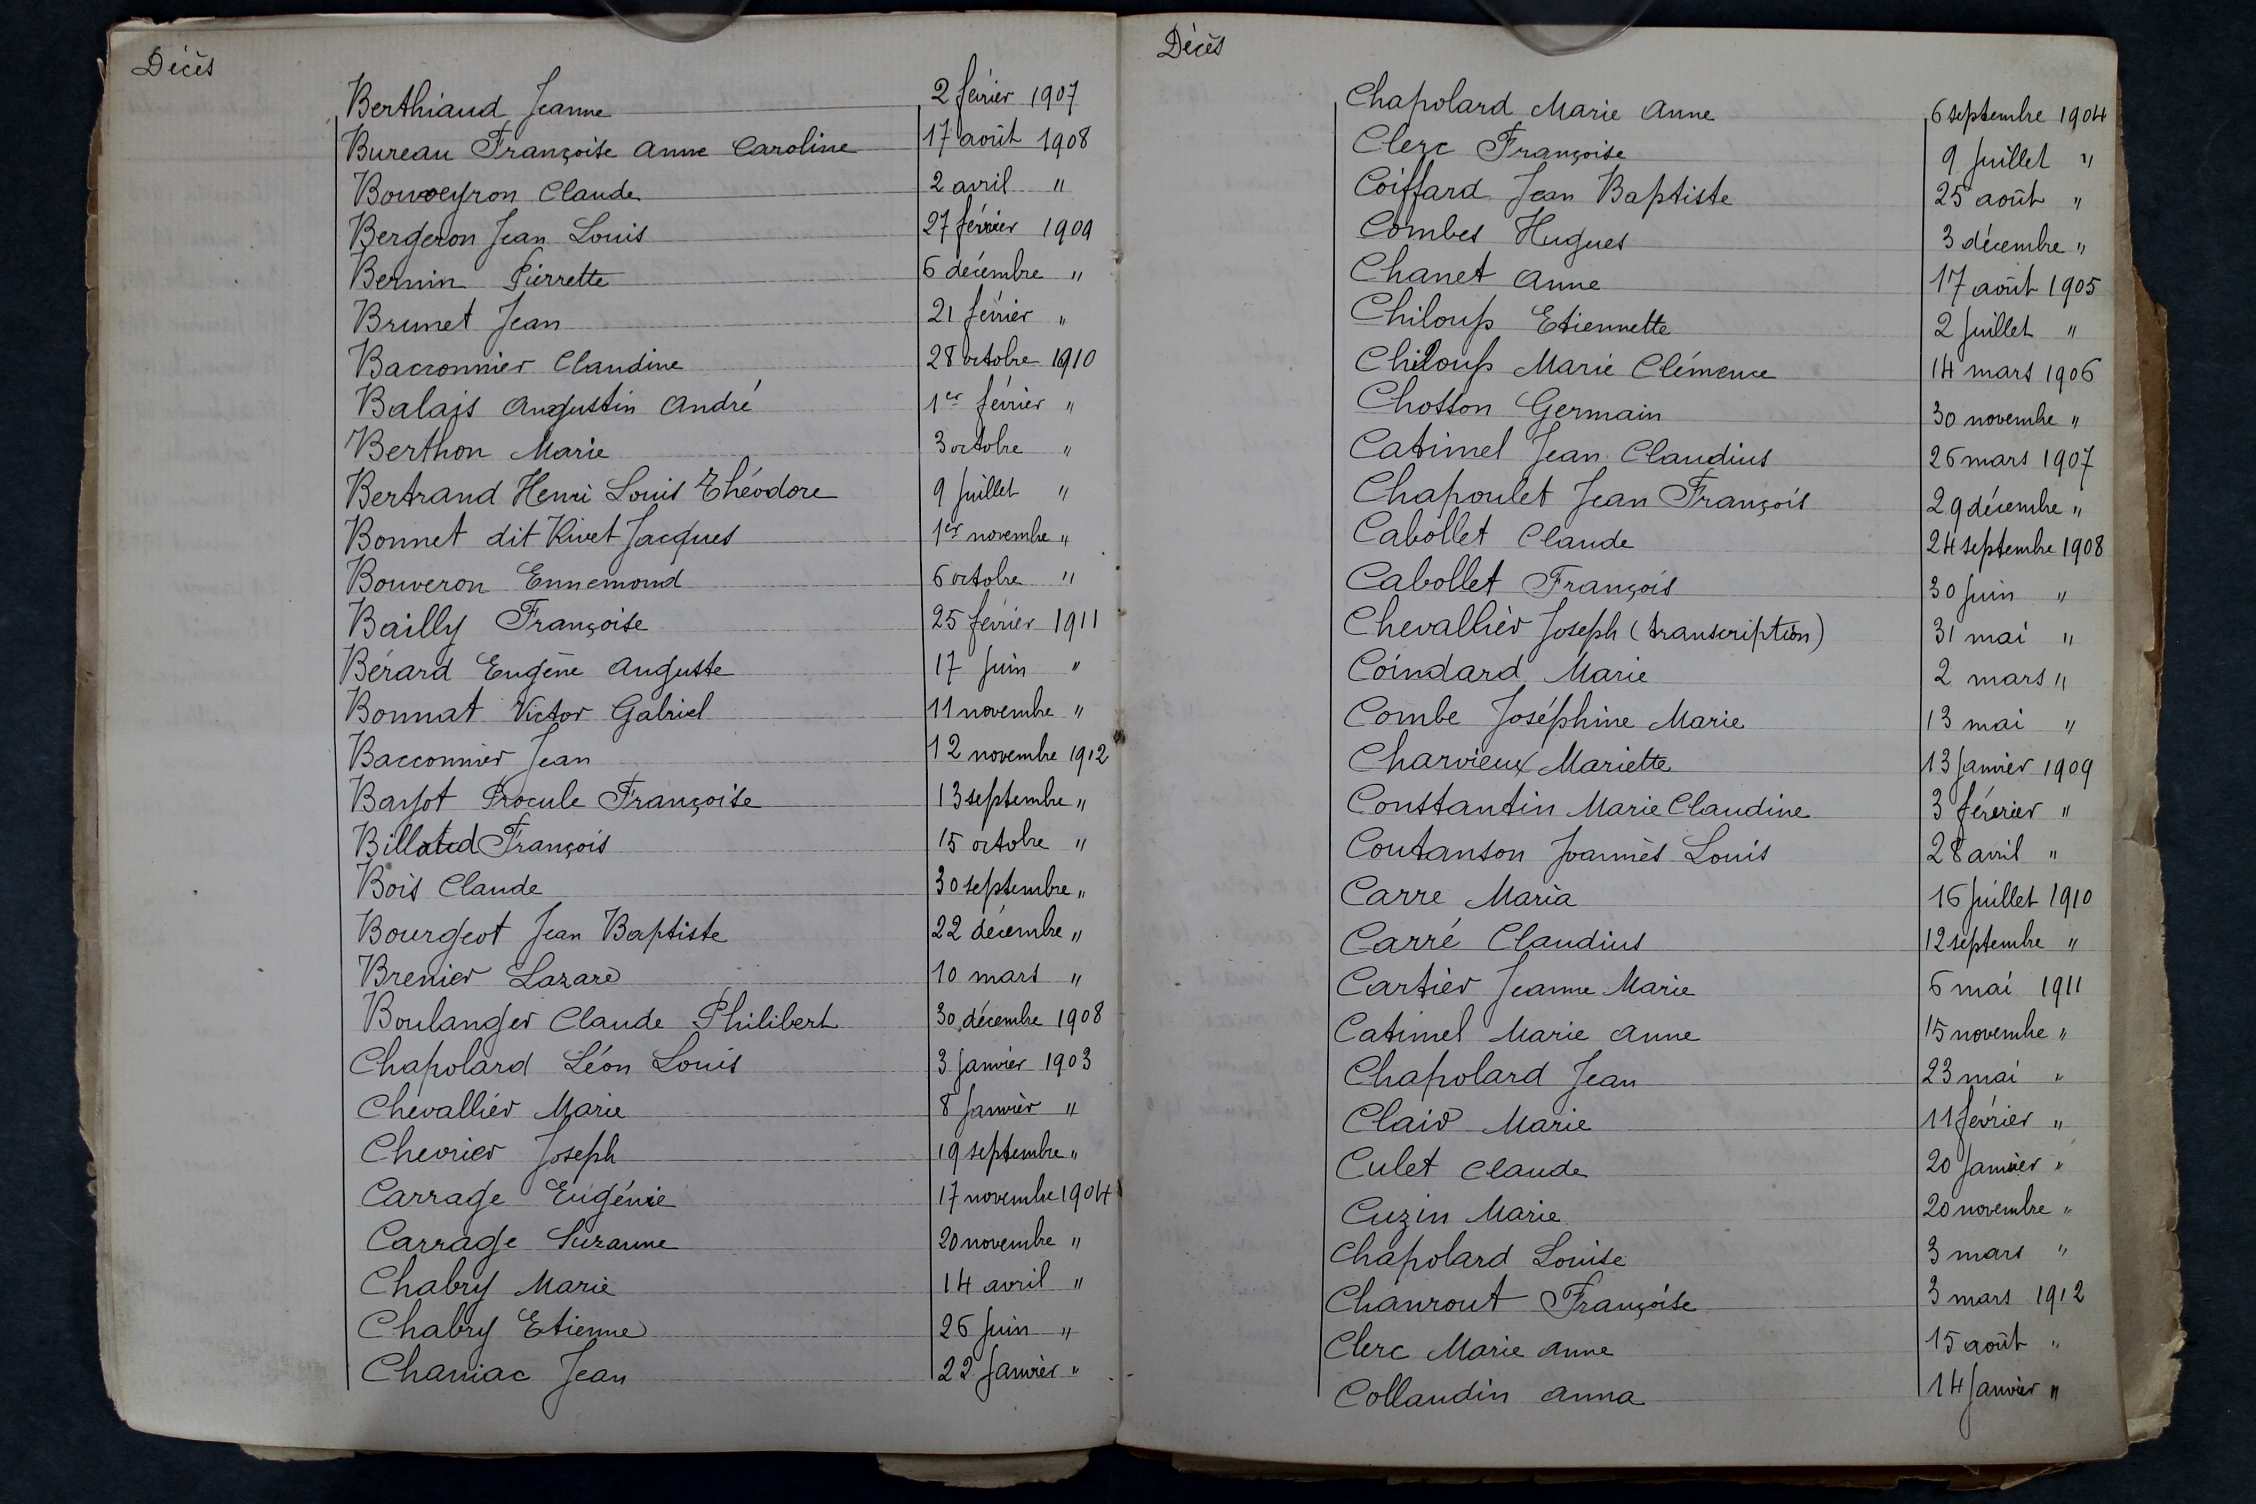 Décès
Berthiaud Jeanne 2 février 1907
Bureau Françoise Anne Caroline 17 août 1908
Bouveyron Claude 2 avril "
Bergeron Jean Louis 27 février 1909
Bernin Pierrette 6 décembre "
Brunet Jean 21 février "
Bacconnier Claudine 28 octobre 1910
Balais Augustin André 1er février "
Berthon Marie 3 octobre "
Bertrand Henri Louis Théodore 9 juillet "
Bonnet dit Rivet Jacques 1er novembre "
Bouveron Ennemond 6 octobre "
Bailly Françoise 25 février 1911
Bérard Eugène Auguste 17 juin "
Bonnat Victor Gabriel 11 novembre "
Bacconnier Jean 12 novembre 1912
Bayot Procule Françoise 13 septembre "
François 15 octobre "
Bois Claude 30 septembre "
Bourgeot Jean Baptiste 22 décembre "
Brenier Lazare 10 mars "
Boulanger Claude Philibert 30 décembre 1908
Chapolard Léon Louis 3 janvier 1903
Chevallier Marie 8 janvier "
Chevrier Joseph 19 septembre "
Carrage Eugénie 17 novembre 1904
Carrage Suzanne 20 novembre "
Chabry Marie 14 avril "
Chabry Etienne 26 juin "
Chaniac Jean 22 janvier "
Décès
Chapolard Marie Anne 6 septembre 1904
Clerc Françoise 9 juillet "
Coiffard Jean Baptiste 25 août "
Combes Hugues 3 décembre "
Chanet Anne 17 août 1905
Chiloup Etiennette 2 juillet "
Chiloup Marie Clémence 14 mars 1906
Chosson Germain 30 novembre "
Catimel Jean Claudius 26 mars 1907
Chapoulet Jean François 29 décembre "
Cabollet Claude 24 septembre 1908
Cabollet François 30 juin "
Chevallier Joseph (transcription) 31 mai "
Coindard Marie 2 mars "
Combe Joséphine Marie 13 mai "
Charvieux Mariette 13 janvier 1909
Constantin Marie Claudine 3 février "
Coutanson Joannès Louis 28 avril "
Carre Maria 16 juillet 1910
Carré Claudius 12 septembre "
Cartier Jeanne Marie 6 mai 1911
Catimel Marie Anne 15 novembre "
Chapolard Jean 23 mai "
Clair Marie 11 février "
Culet Claude 20 janvier "
Cuzin Marie 20 novembre "
Chapolard Louise 3 mars "
Chanrout Françoise 3 mars 1912
Clerc Marie Anne 15 août "
Collaudin Anna 14 janvier "